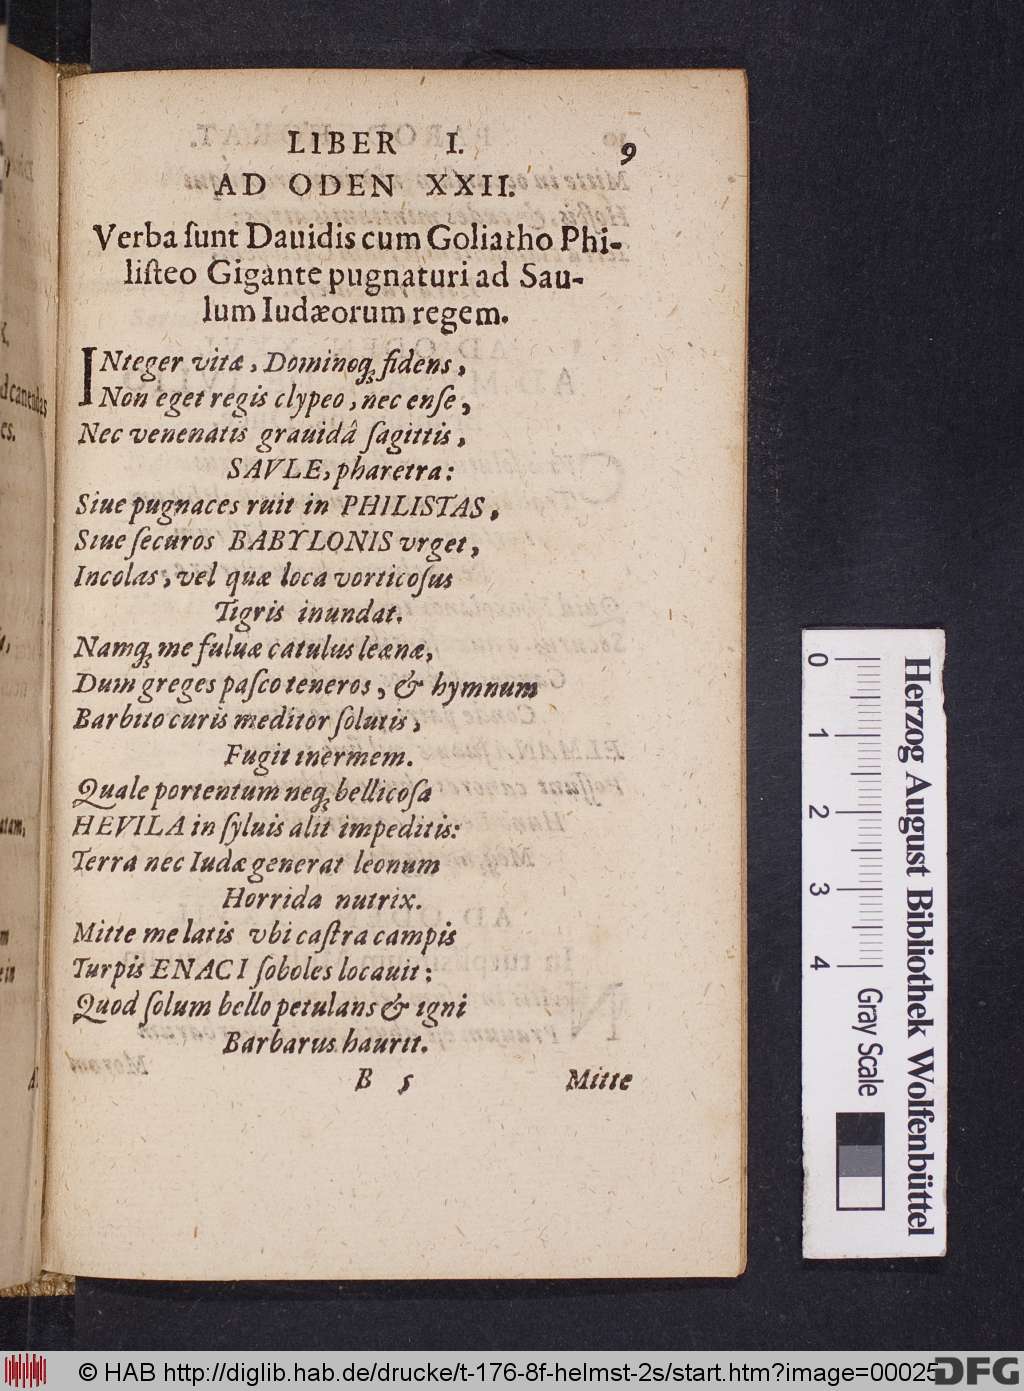 LIBER I. 9
AD ODEN XXII.
Verba ſunt Dauidis cum Goliatho Phi-
liſteo Gigante pugnaturi ad Sau-
lum Iudæorum regem.
INteger vitæ, Dominoq̃ fidens,
Non eget regis clypeo, nec enſe,
Nec venenatis grauidâ ſagittis,
SAVLE, pharetra:
Siue pugnaces ruit in PHILISTAS,
Siue ſecuros BABYLONIS vrget,
Incolas, vel quæ loca vorticoſus
Tigris inundat.
Namq̃ me fuluæ catulus leænæ,
Dum greges paſco teneros, & hymnum
Barbito curis meditor ſolutis,
Fugit inermem.
Quale portentum neq̃ bellicoſa
HEVILA in ſyluis alit impeditis:
Terra nec Iudæ generat leonum
Horrida nutrix.
Mitte me latis vbi caſtra campis
Turpis ENACI ſoboles locauit:
Quod ſolum bello petulans & igni
Barbarus haurit.
B 5 Mitte
0 1 2 3 4
Herzog August Bibliothek Wolfenbüttel
Gray Scale
© HAB http://diglib.hab.de/drucke/t-176-8f-helmst-2s/start.htm?image=00025
DFG